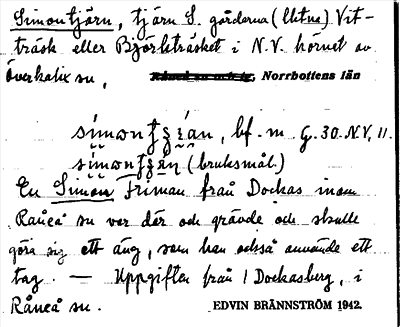 Simontjärn, tjärn S. gårdarna (lktns) Vit-
träsk eller Björkträsket i N.V. hörnet av
Överkalix sn, Norrbottens län
bf. m G. 30. N.V. 11.
(bruksmål.)
En Simon Friman från Dockas inom
Råneå sn var där och grävde och skulle
göra sig ett äng, som han också använde ett
tag. — Uppgiften från 1 Dockasberg, i
Råneå sn. EDVIN BRÄNNSTRÖM 1942.